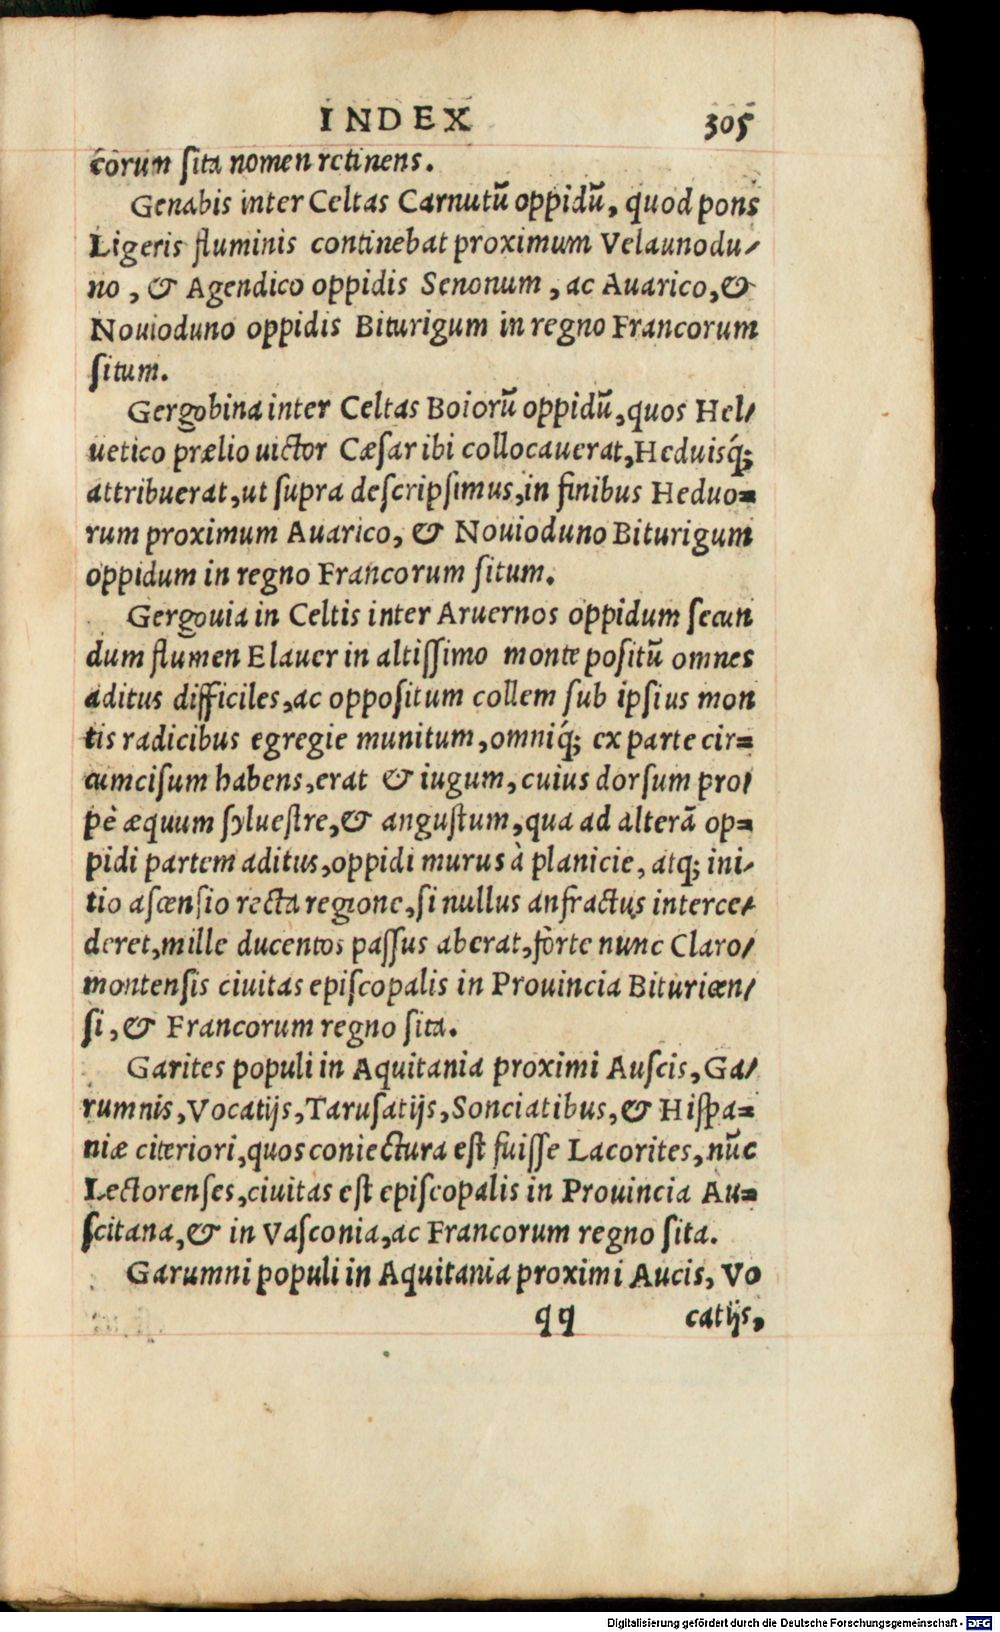 INDEX 305
corum sita nomen retinens.
Genabis inter Celtas Carnutũ oppidũ, quod pons
Ligeris fluminis continebat proximum Velaunodu/
no, & Agendico oppidis Senonum, ac Auarico, &
Nouioduno oppidis Biturigum in regno Francorum
ſitum.
Gergobina inter Celtas Boiorũ oppidũ, quos Hel/
uetico prælio uictor Cæſar ibi collocauerat, Heduisq́;
attribuerat, ut ſupra deſcripſimus, in finibus Heduo=
rum proximum Auarico, & Nouioduno Biturigum
oppidum in regno Francorum ſitum.
Gergouia in Celtis inter Aruernos oppidum ſecun
dum flumen Elauer in altiſſimo monte poſitũ omnes
aditus difficiles, ac oppoſitum collem ſub ipſius mon
tis radicibus egregie munitum, omniq́; ex parte cir=
cumciſum habens, erat & iugum, cuius dorſum pro/
pè æquum ſylueſtre, & anguſtum, qua ad alterã op=
pidi partem aditus, oppidi murus à planicie, atq; ini/
tio aſcenſio recta regione, ſi nullus anfractus interce/
deret, mille ducentos paſſus aberat, forte nunc Claro/
montenſis ciuitas epiſcopalis in Prouincia Bituricen/
ſi, & Francorum regno ſita.
Garites populi in Aquitania proximi Auſcis, Ga/
rumnis, Vocatijs, Taruſatijs, Sonciatibus, & Hiſpa=
niæ citeriori, quos coniectura eſt fuiſſe Lacorites, nũc
Lectorenſes, ciuitas eſt epiſcopalis in Prouincia Au=
ſcitana, & in Vaſconia, ac Francorum regno ſita.
Garumni populi in Aquitania proximi Aucis, Vo
qq catijs,
Digitalisierung gefördert durch die Deutsche Forschungsgemeinschaft - DFG